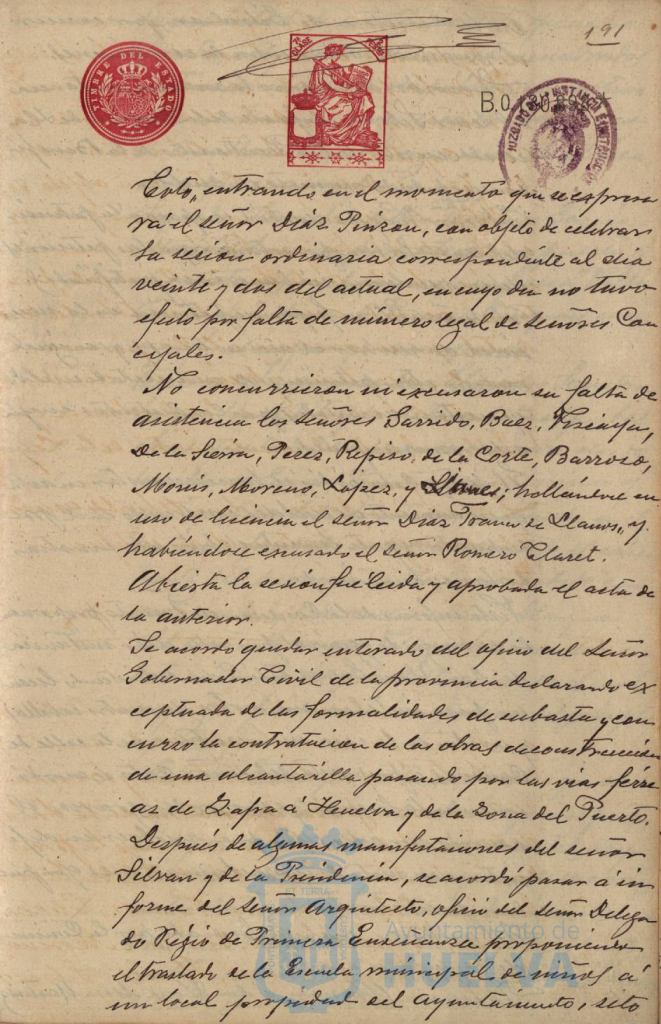 191
TIMBRE DEL ESTADO
CLASE
B.0.
JUZGADO DE 1ª INSTANCIA E INSTRUCCION
Coto, entrando en el momento que se expresa
rá el señor Diaz Pinzon, con objeto de celebrar
la sesion ordinaria correspondiente al dia
veinte y dos del actual, en cuyo dia no tuvo
efecto por falta de número legal de señores Con
cejales.
No concurrieron ni excusaron su falta de
asistencia los señores Garrido, Baez, Vizcaya,
De la Sierra, Perez, Repiso, de la Corte, Barroso,
Monis, Moreno, Lopez, y ; hallándose en
uso de licencia el señor Diaz Franco de Llanos, y
habiéndose excusado el señor Romero Claret.
Abierta la sesión fué leida y aprobada el acta de
la anterior.
Se acordó quedar enterado del oficio del Señor
Gobernador Civil de la provincia declarando ex
ceptuada de las formalidades de subasta y con
curzo la contratacion de las obras de construccion
de una alcantarilla pasando por las vias férre
as de Zafra á Huelva y de la Zona del Puerto.
Después de algunas manifestaciones del señor
Silvan y de la Presidencia, se acordó pasar á in
forme del señor Arquitecto, oficio del señor Delega
do Régio de Primera Enseñanza proponiendo
el traslado de la Escuela municipal de niños á
un local propiedad del Ayuntamiento, sito
Ayuntamiento de
HUELVA